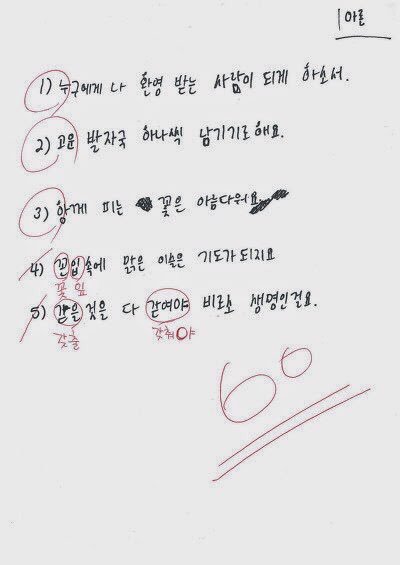 아론
1) 누구에게나 환영 받는 사람이 되게 하소서.
2) 고운 발자국 하나씩 남기기로 해요.
3) 함께 피는 꽃은 아름다워요
4) 꼰입속에 맑은 이슬은 기도가 되지요
꽃 잎
5) 갇을 것을 다 갇여야 비로소 생명인걸요.
갖출 갖춰야
60